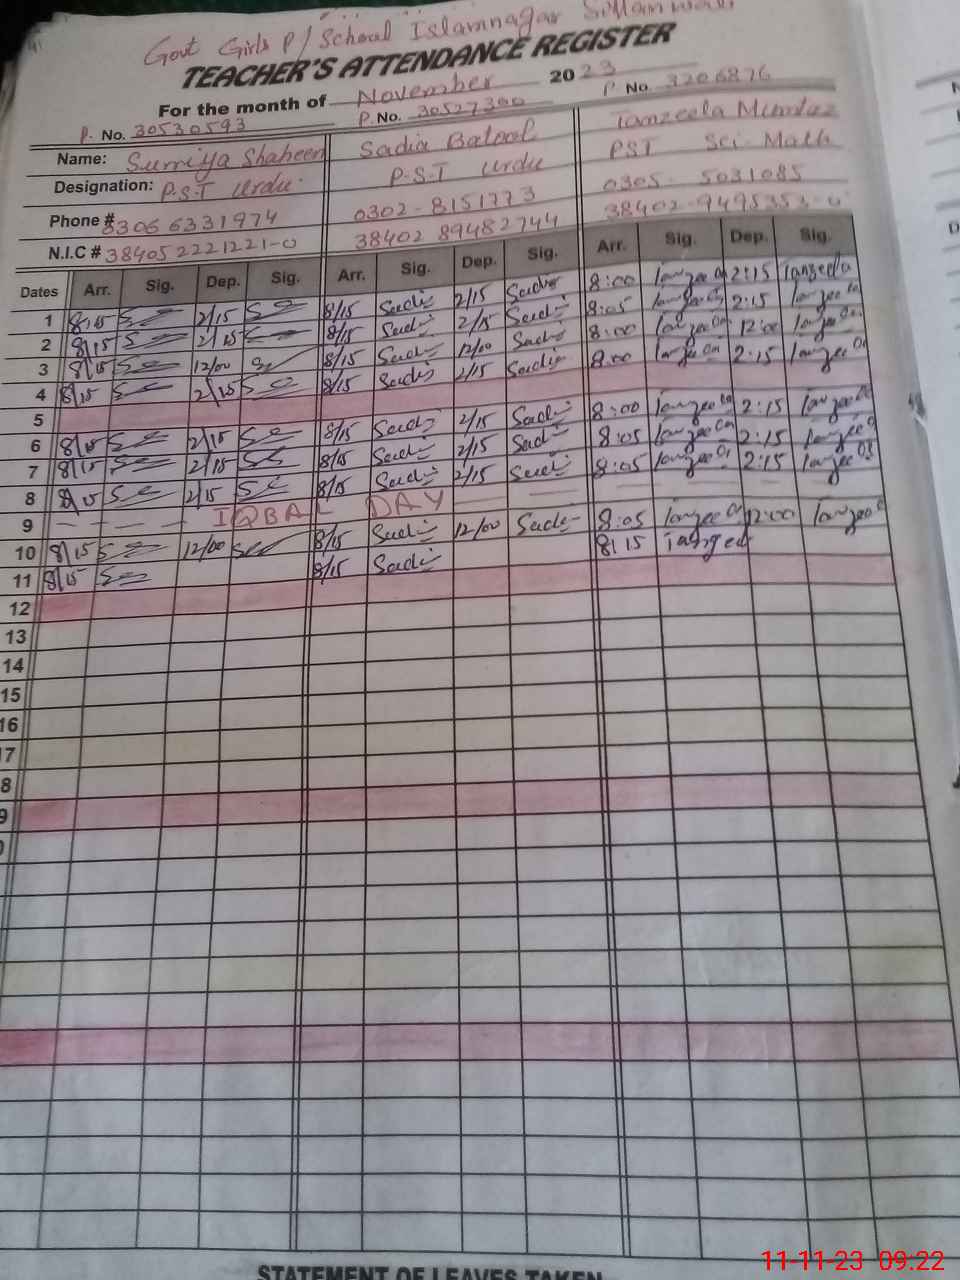 Govt Girls P/School Islamnagar Sillanwali
TEACHER'S ATTENDANCE REGISTER
For the month of November 2023
P. No. 30530593 P. No. 30527300 P No. 3206876
Name: Surriya Shaheen Sadia Batool Tanzeela Mumtaz
Designation: P.S.T Urdu. P.S.T Urdu PST Sci. Math
Phone # 0306 6331974 0302-8151773 0305-5031085
N.I.C # 384052221221-0 38402 89482744 38402-9495353-0
Dates Arr. Sig. Dep. Sig. Arr. Sig. Dep. Sig. Arr. Sig. Dep. Sig.
1 8/15 2/15 8/15 Sadia 2/15 Sadia 8:00 Tanzeela 2:15 Tanzeela
2 8/15 2/15 8/15 Sadia 2/15 Sadia 8:05 Tanzeela 2:15 Tanzeela
3 8/15 12/00 8/15 Sadia 12/00 Sadia 8:00 Tanzeela 12:00 Tanzeela
4 8/15 2/15 8/15 Sadia 2/15 Sadia 8:00 Tanzeela 2:15 Tanzeela
5
6 8/15 2/15 8/15 Sadia 2/15 Sadia 8:00 Tanzeela 2:15 Tanzeela
7 8/15 2/15 8/15 Sadia 2/15 Sadia 8:05 Tanzeela 2:15 Tanzeela
8 8/15 2/15 8/15 Sadia 2/15 Sadia 8:05 Tanzeela 2:15 Tanzeela
9 IQBAL DAY
10 8/15 12/00 8/15 Sadia 12/00 Sadia 8:05 Tanzeela 12:00 Tanzeela
11 8/15 8/15 Sadia 8:15 Tanzeela
12
13
14
15
16
17
8
9
STATEMENT OF LEAVES TAKEN
11-11-23 09:22